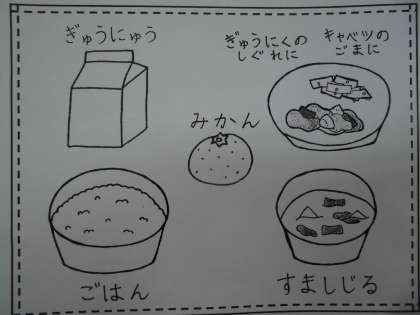 ぎゅうにゅう
ぎゅうにくの
しぐれに
キャベツの
ごまに
みかん
ごはん
すましじる